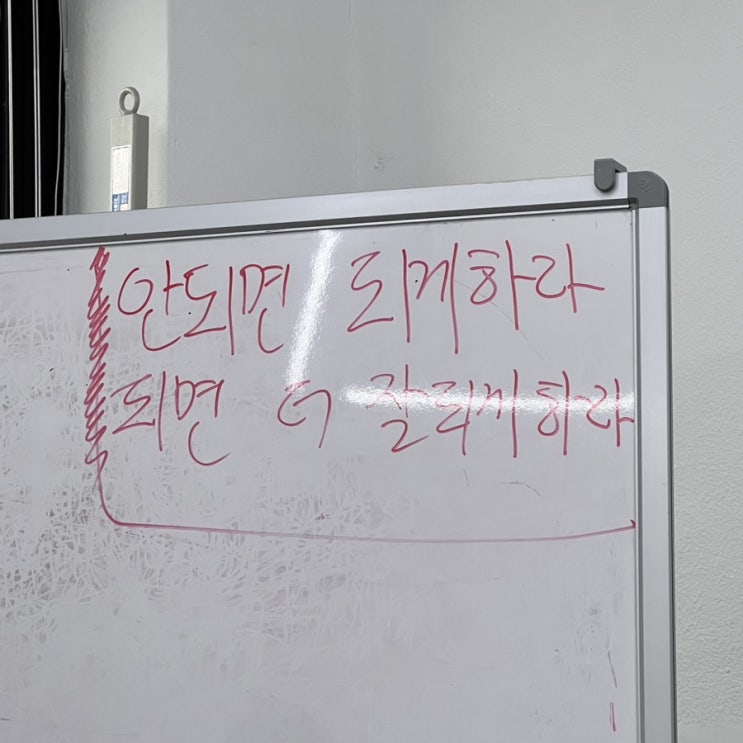 안되면 되게하라
되면 더 잘되게하라